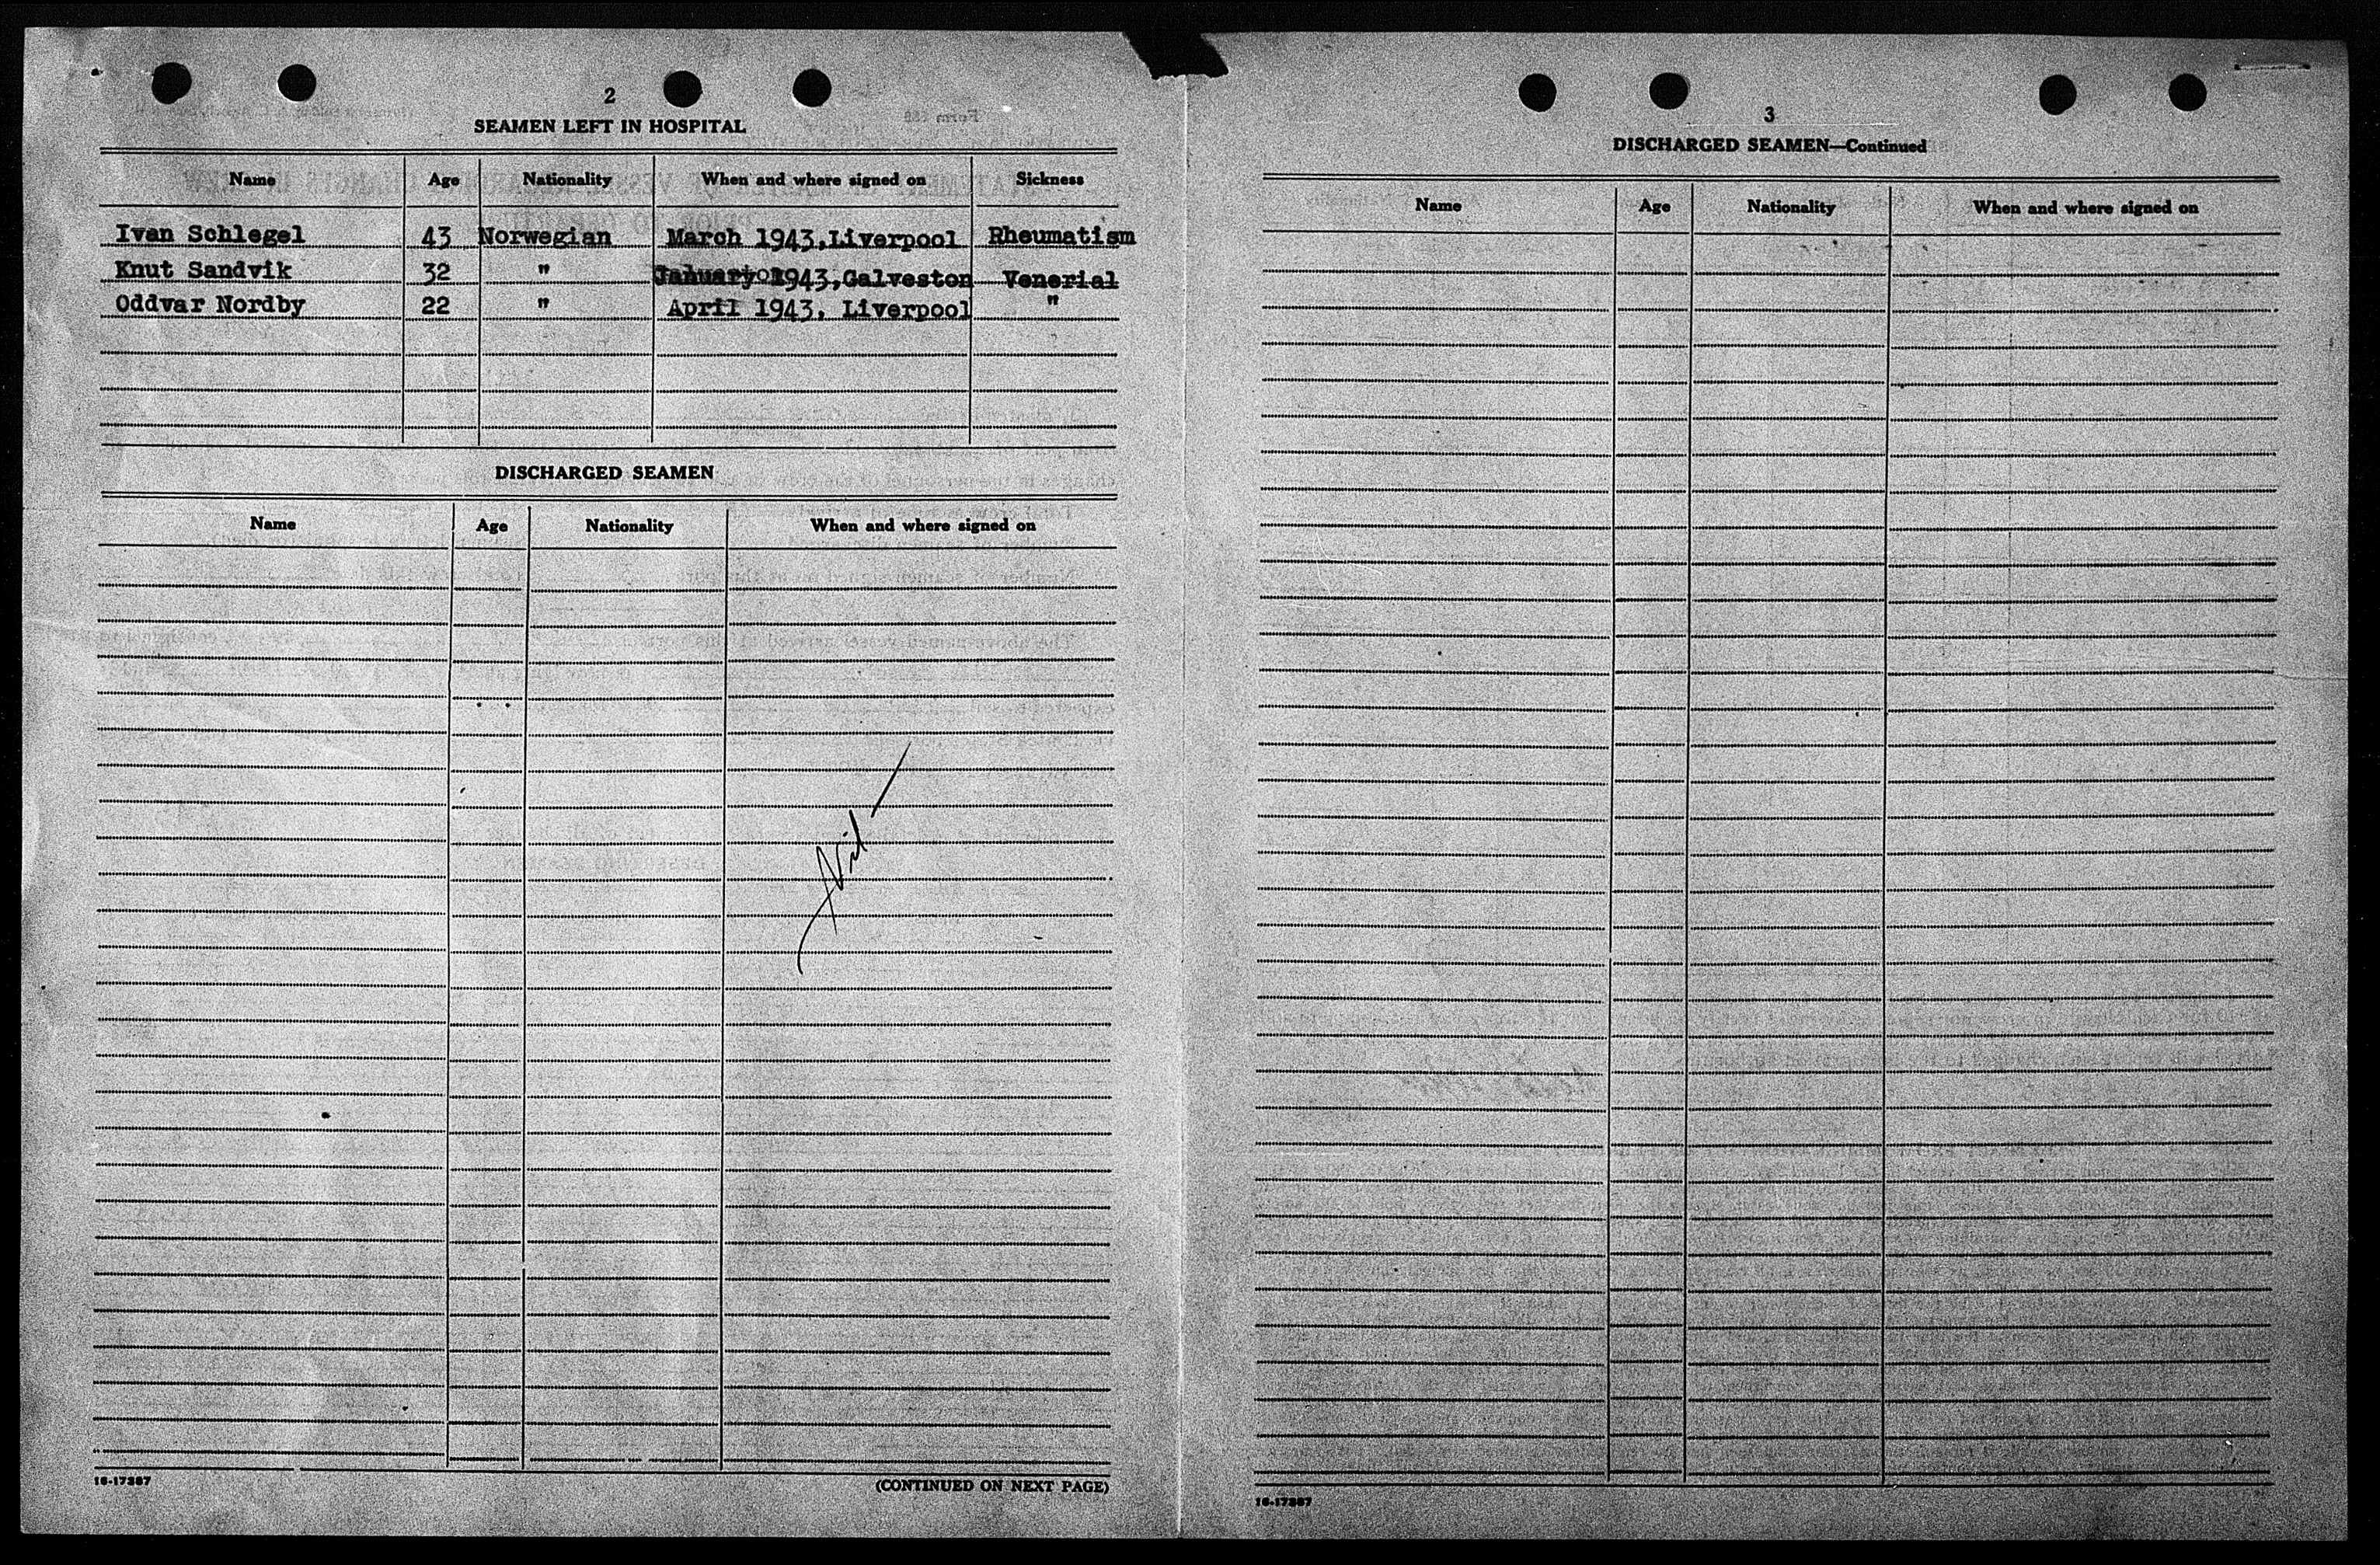 2
SEAMEN LEFT IN HOSPITAL
Name Age Nationality When and where signed on Sickness
Ivan Schlegel 43 Norwegian March 1943,Liverpool Rheumatism
Knut Sandvik 32 " January 1943,Galveston Venerial
Oddvar Nordby 22 " April 1943, Liverpool "
DISCHARGED SEAMEN
Name Age Nationality When and where signed on
Nil
16-17367 (CONTINUED ON NEXT PAGE)
3
DISCHARGED SEAMEN—Continued
Name Age Nationality When and where signed on
16-17367